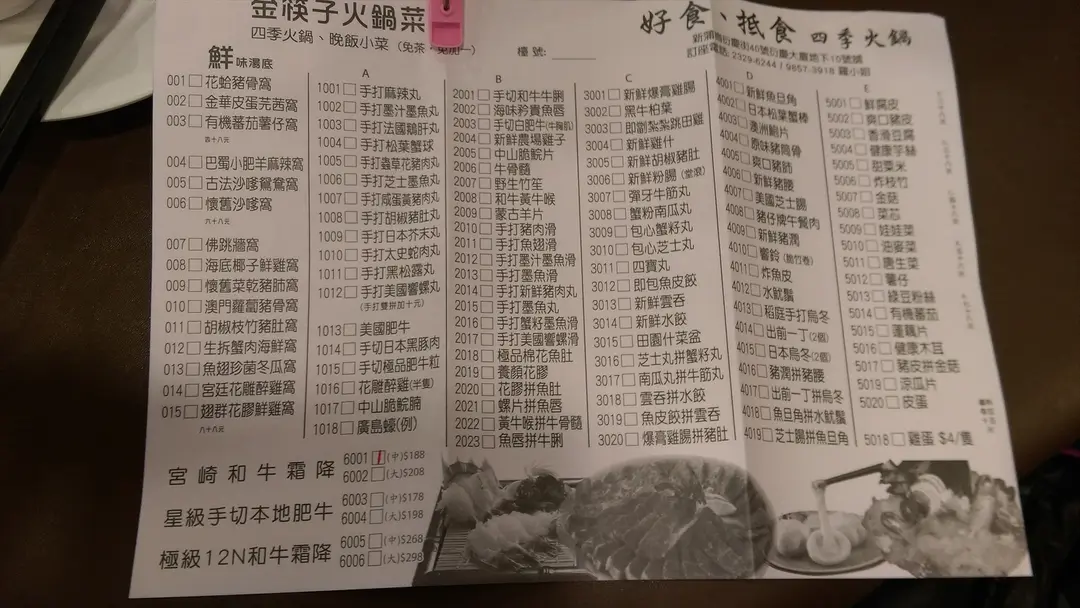 金筷子火鍋菜
四季火鍋、晚飯小菜（免茶、免加一）
檯號:
好食、抵食 四季火鍋
新蒲崗衍慶街40號衍慶大廈地下10號舖
訂座電話: 2329-6244 / 9857-3918 羅小姐
鮮味湯底
001 花蛤豬骨窩
002 金華皮蛋芫茜窩
003 有機蕃茄薯仔窩
四十八元
004 巴蜀小肥羊麻辣窩
005 古法沙嗲鴛鴦窩
006 懷舊沙嗲窩
六十八元
007 佛跳牆窩
008 海底椰子鮮雞窩
009 懷舊菜乾豬肺窩
010 澳門蘿蔔豬骨窩
011 胡椒枝竹豬肚窩
012 生拆蟹肉海鮮窩
013 魚翅珍菌冬瓜窩
014 宮廷花雕醉雞窩
015 翅群花膠鮮雞窩
八十八元
A
1001 手打麻辣丸
1002 手打墨汁墨魚丸
1003 手打法國鵝肝丸
1004 手打松葉蟹球
1005 手打蟲草花豬肉丸
1006 手打芝士墨魚丸
1007 手打咸蛋黃豬肉丸
1008 手打胡椒豬肚丸
1009 手打日本芥末丸
1010 手打太史蛇肉丸
1011 手打黑松露丸
1012 手打美國響螺丸
(手打雙拼加十元)
1013 美國肥牛
1014 手切日本黑豚肉
1015 手切極品肥牛粒
1016 花雕醉雞(半隻)
1017 中山脆鯇腩
1018 廣島蠔(例)
B
2001 手切和牛牛脷
2002 海味矜貴魚唇
2003 手切白肥牛(牛胸肌)
2004 新鮮農場雞子
2005 中山脆鯇片
2006 牛骨髓
2007 野生竹笙
2008 和牛黃牛喉
2009 蒙古羊片
2010 手打豬肉滑
2011 手打魚翅滑
2012 手打墨汁墨魚滑
2013 手打墨魚滑
2014 手打新鮮豬肉丸
2015 手打墨魚丸
2016 手打蟹籽墨魚滑
2017 手打美國響螺滑
2018 極品棉花魚肚
2019 養顏花膠
2020 花膠拼魚肚
2021 螺片拼魚唇
2022 黃牛喉拼牛骨髓
2023 魚唇拼牛脷
C
3001 新鮮爆膏雞腸
3002 黑牛柏葉
3003 即劏紮紮跳田雞
3004 新鮮雞什
3005 新鮮胡椒豬肚
3006 新鮮粉腸
3007 彈牙牛筋丸
3008 蟹粉南瓜丸
3009 包心蟹籽丸
3010 包心芝士丸
3011 四寶丸
3012 即包魚皮餃
3013 新鮮雲吞
3014 新鮮水餃
3015 田園什菜盆
3016 芝士丸拼蟹籽丸
3017 南瓜丸拼牛筋丸
3018 雲吞拼水餃
3019 魚皮餃拼雲吞
3020 爆膏雞腸拼豬肚
D
4001 新鮮魚旦角
4002 日本松葉蟹棒
4003 澳洲鮑片
4004 原味豬筒骨
4005 爽口豬肺
4006 新鮮豬腰
4007 美國芝士腸
4008 豬仔牌午餐肉
4009 新鮮豬潤
4010 響鈴(脆竹卷)
4011 炸魚皮
4012 水魷鬚
4013 稻庭手打烏冬
4014 出前一丁(2個)
4015 日本烏冬(2個)
4016 豬潤拼豬腰
4017 出前一丁拼烏冬
4018 魚旦角拼水魷鬚
4019 芝士腸拼魚旦角
E
5001 鮮腐皮
5002 爽口豬皮
5003 香滑豆腐
5004 健康芋絲
5005 甜粟米
5006 炸枝竹
5007 金菇
5008 菜芯
5009 娃娃菜
5010 油麥菜
5011 唐生菜
5012 薯仔
5013 綠豆粉絲
5014 有機蕃茄
5015 蓮藕片
5016 健康木耳
5017 豬皮拼金菇
5019 涼瓜片
5020 皮蛋
5018 雞蛋 $4/隻
宮崎和牛霜降 6001 (中)$188
6002 (大)$208
星級手切本地肥牛 6003 (中)$178
6004 (大)$198
極級12N和牛霜降 6005 (中)$268
6006 (大)$298